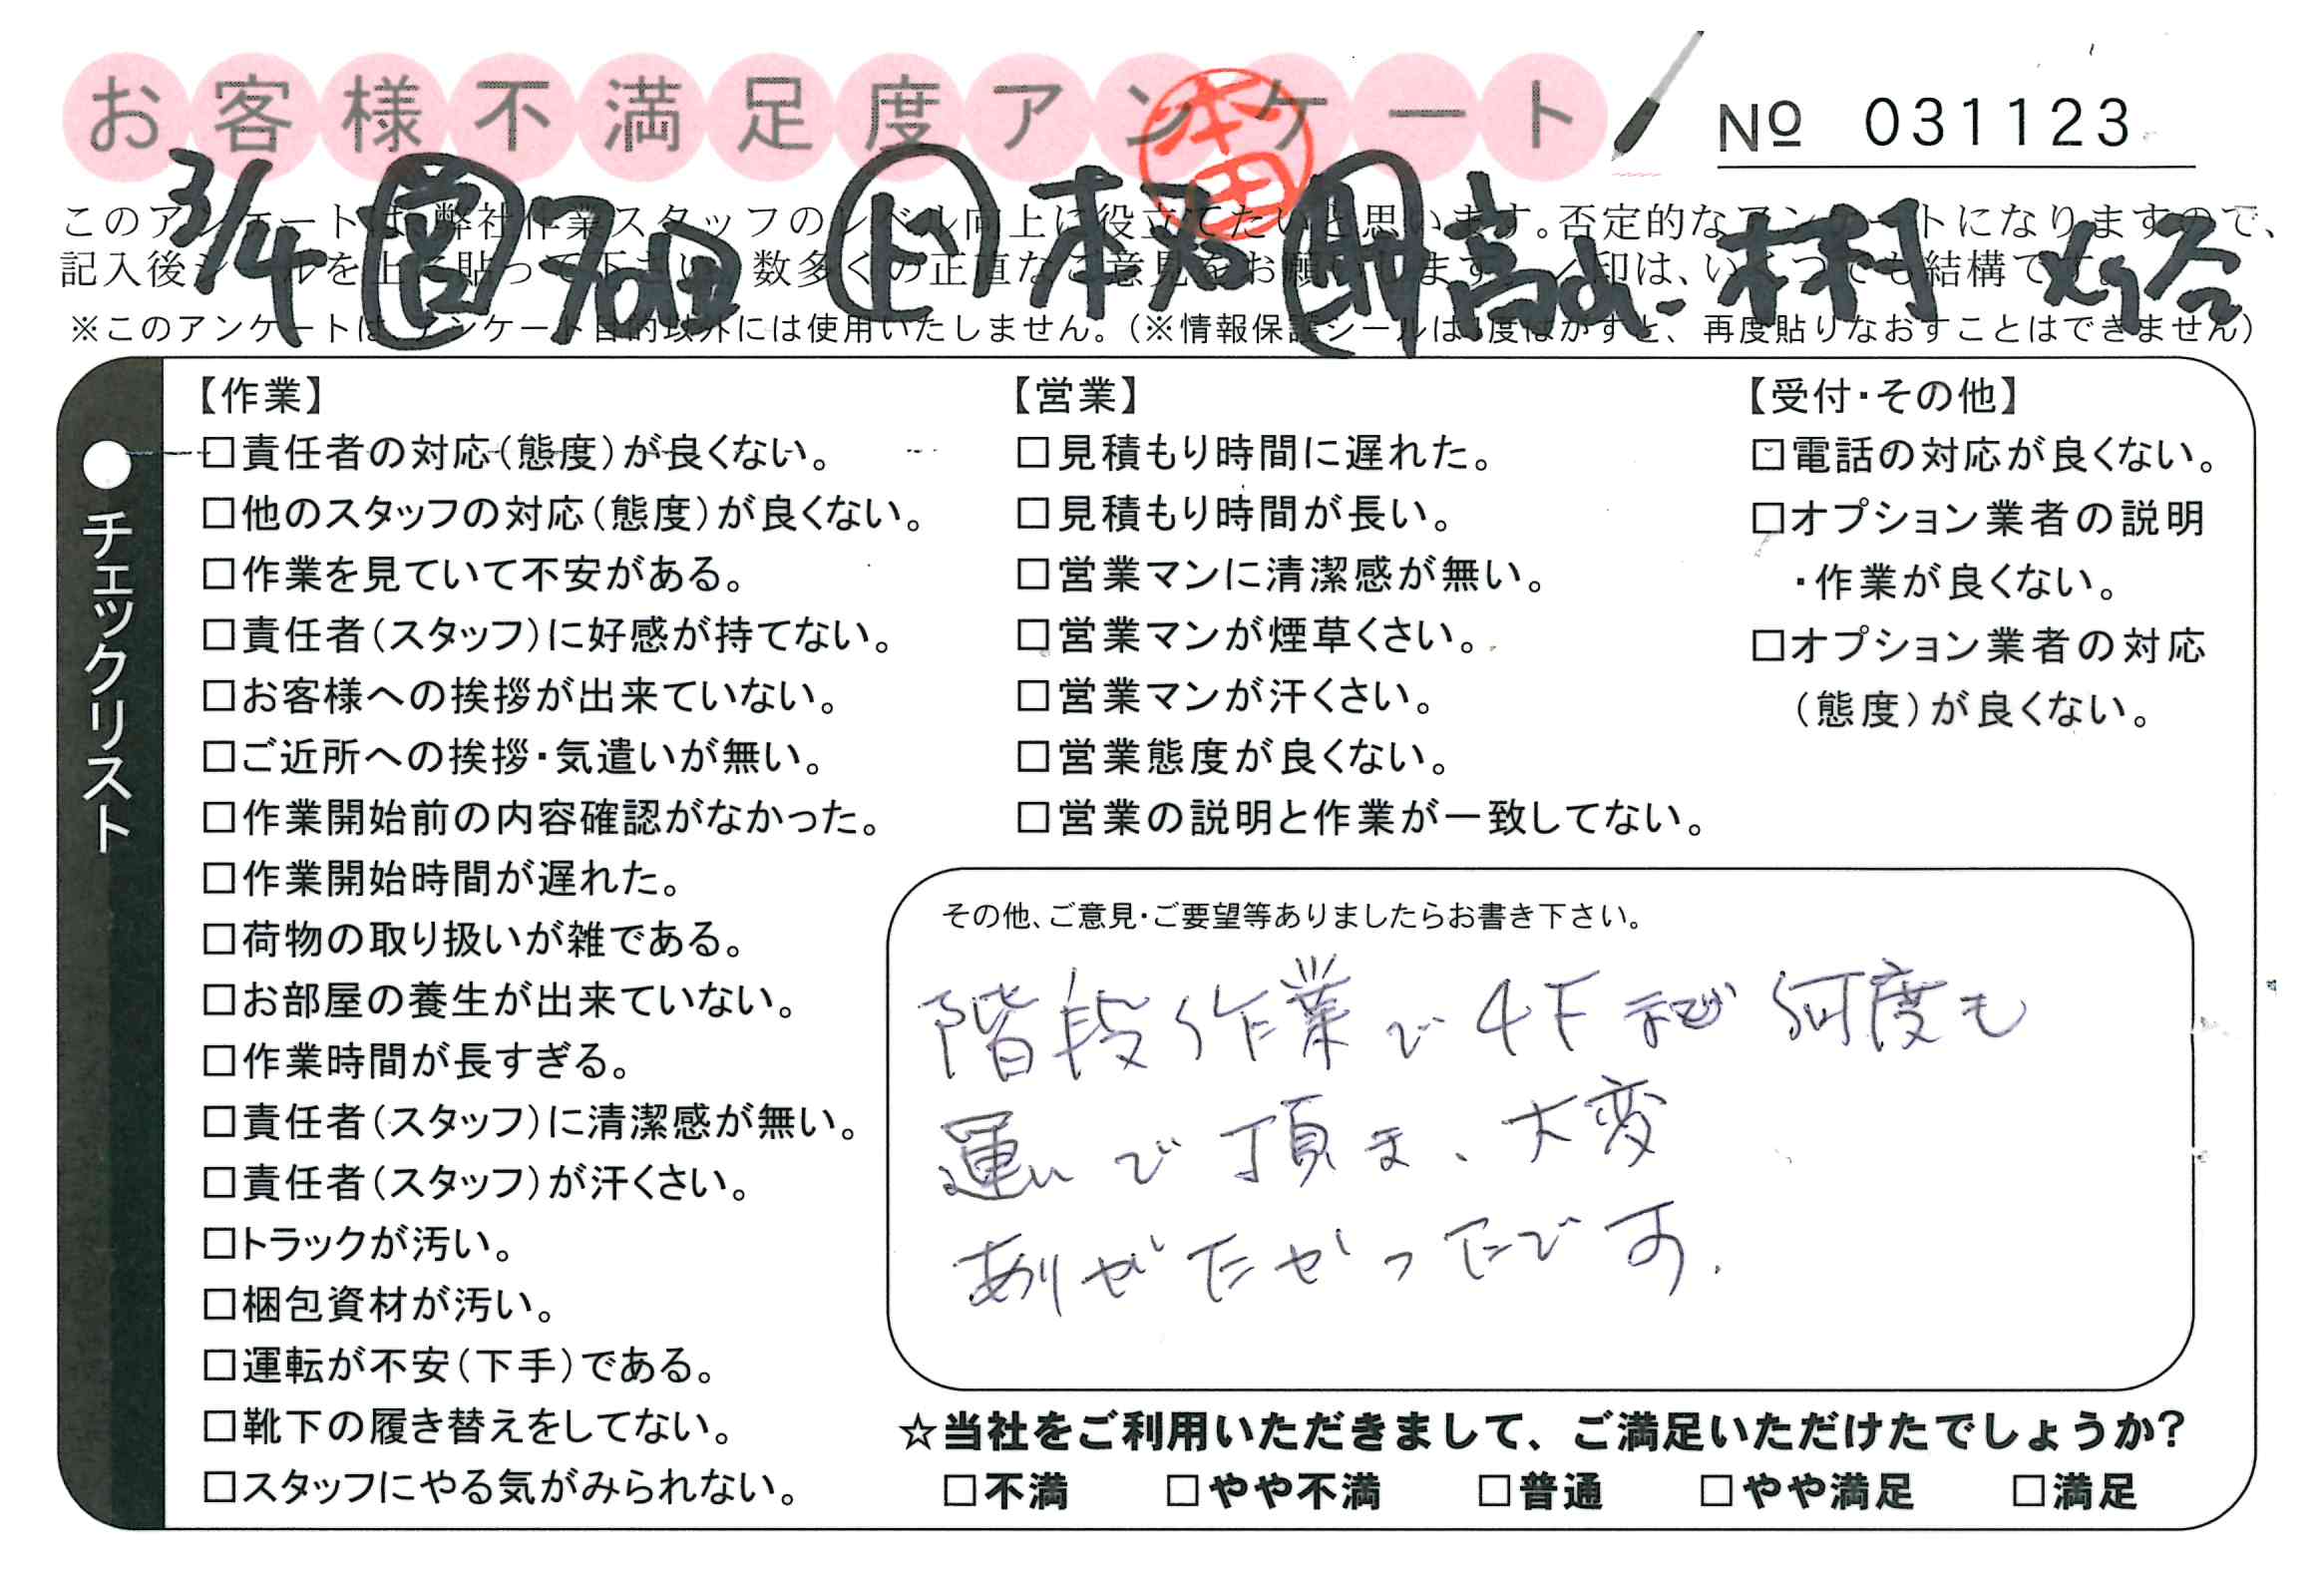 お客様不満足度アンケート
№ 031123
本田
3/4 営 下 本 高山 木村 刈谷
このアンケートは、弊社作業スタッフのレベル向上に役立てたいと思います。否定的なアンケートになりますので、
記入後シールを上に貼って下さい。数多くの正直なご意見をお願いします。✓印は、いくつでも結構です。
※このアンケートは、アンケート目的以外には使用いたしません。(※情報保護シールは1度はがすと、再度貼りなおすことはできません)
●チェックリスト
【作業】
□責任者の対応(態度)が良くない。
□他のスタッフの対応(態度)が良くない。
□作業を見ていて不安がある。
□責任者(スタッフ)に好感が持てない。
□お客様への挨拶が出来ていない。
□ご近所への挨拶・気遣いが無い。
□作業開始前の内容確認がなかった。
□作業開始時間が遅れた。
□荷物の取り扱いが雑である。
□お部屋の養生が出来ていない。
□作業時間が長すぎる。
□責任者(スタッフ)に清潔感が無い。
□責任者(スタッフ)が汗くさい。
□トラックが汚い。
□梱包資材が汚い。
□運転が不安(下手)である。
□靴下の履き替えをしてない。
□スタッフにやる気がみられない。
【営業】
□見積もり時間に遅れた。
□見積もり時間が長い。
□営業マンに清潔感が無い。
□営業マンが煙草くさい。
□営業マンが汗くさい。
□営業態度が良くない。
□営業の説明と作業が一致してない。
【受付・その他】
□電話の対応が良くない。
□オプション業者の説明
・作業が良くない。
□オプション業者の対応
(態度)が良くない。
その他、ご意見・ご要望等ありましたらお書き下さい。
階段作業で4Fまで何度も
運んで頂き、大変
ありがたかったです.
☆当社をご利用いただきまして、ご満足いただけたでしょうか?
□不満 □やや不満 □普通 □やや満足 □満足